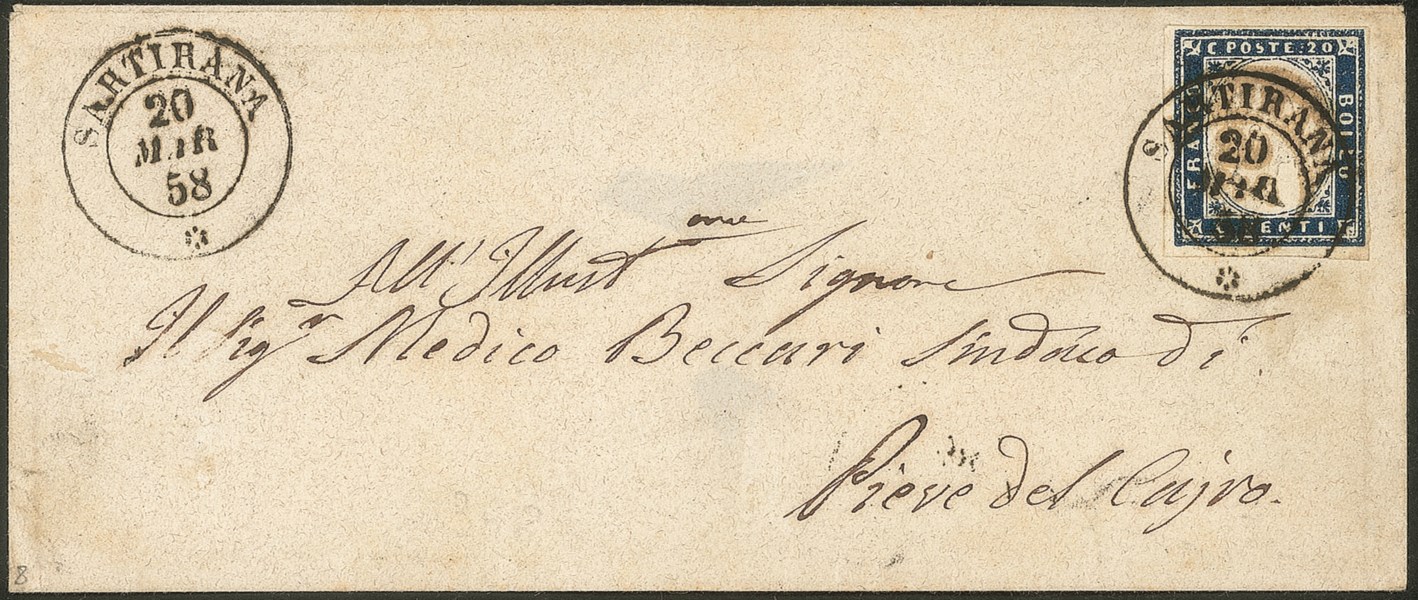 SARTIRANA
20
MAR
58
C POSTE 20
FRANCO
BOLLO
CENTI
SARTIRANA
20
MAR
All' Illust.me Signore
Il Sig.r Medico Beccari Sindaco di
Pieve del Cajro.
8